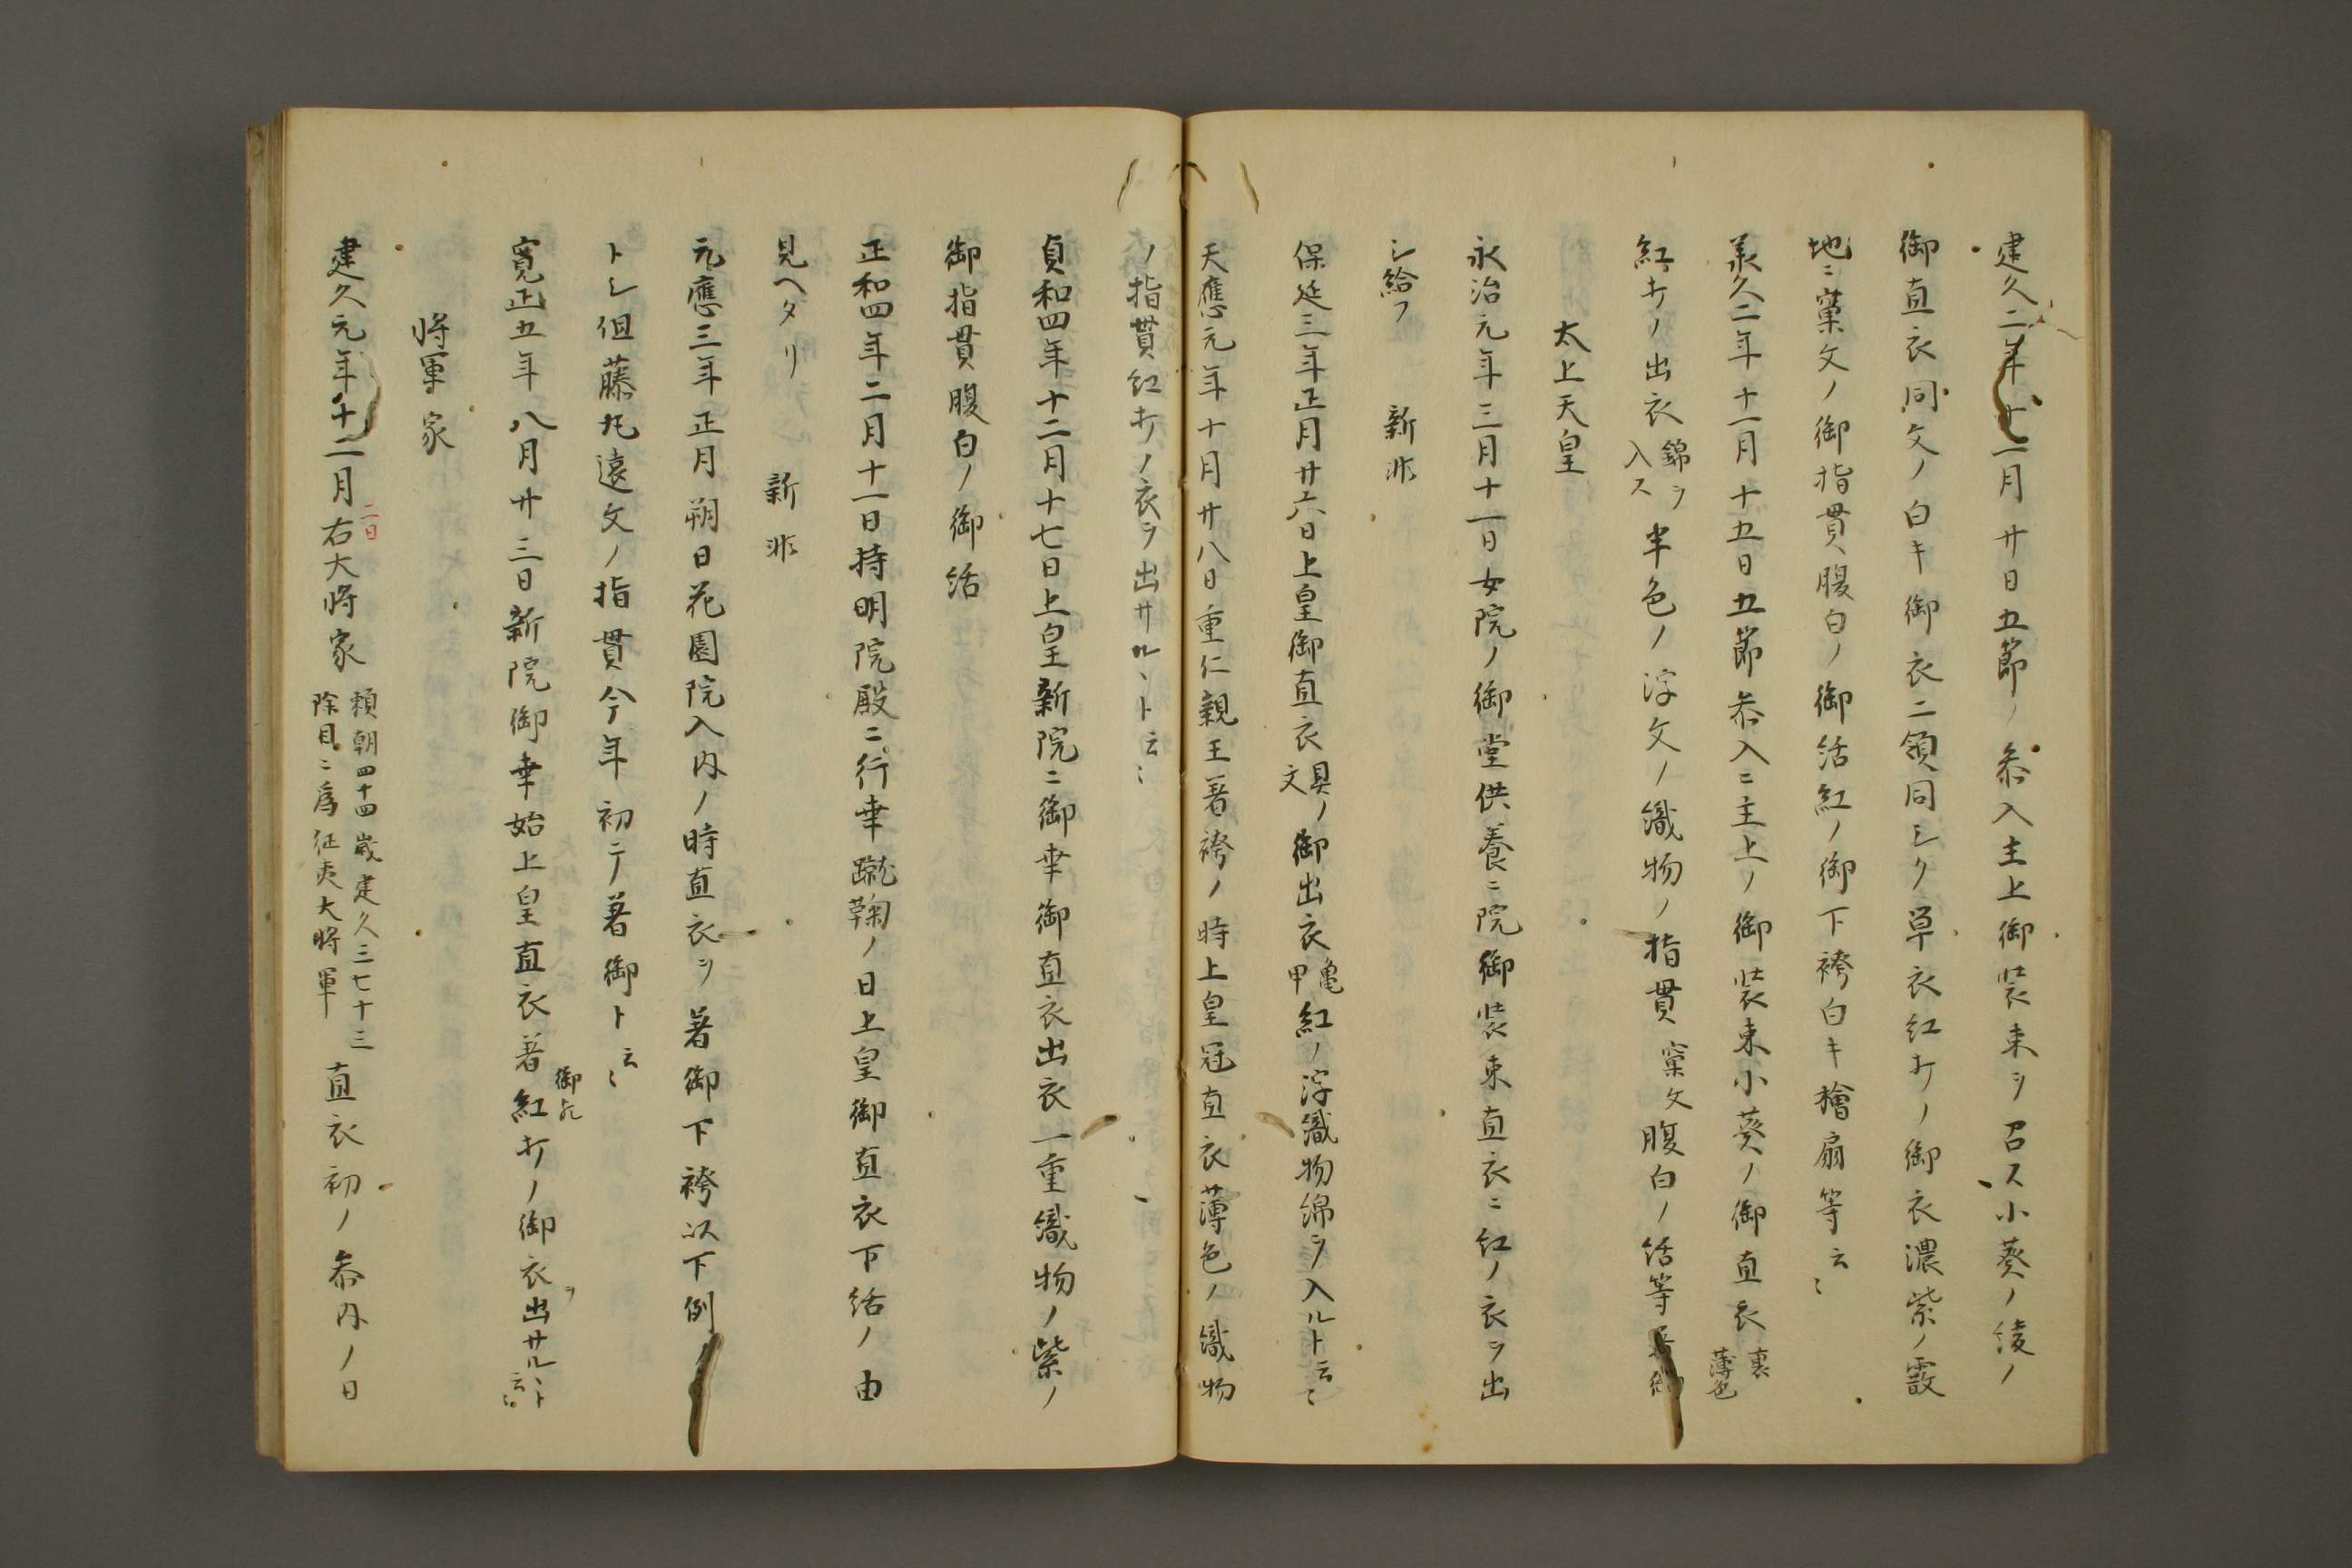 建久二年十一月廿日五節ノ参入主上御装束ヲ召ス小葵ノ綾ノ
御直衣同文ノ白キ御衣二領同シク單衣紅打ノ御衣濃紫ノ霰
地ニ窠文ノ御指貫腹白ノ御括紅ノ御下袴白キ檜扇等云〻
承久二年十一月十五日五節参入ニ主上ノ御装束小葵ノ御直衣裏薄色
紅打ノ出衣錦ヲ入ス半色ノ浮文ノ織物ノ指貫窠文腹白ノ括等
太上天皇
永治元年三月十一日女院ノ御堂供養ニ院御装束直衣ニ紅ノ衣ヲ出
シ給フ 新非
保延三年正月廿六日上皇御直衣具ノ文御出衣亀甲紅ノ浮織物綿ヲ入ルト云〻
天應元年十月廿八日重仁親王著袴ノ時上皇冠直衣薄色ノ織物
ノ指貫紅打ノ衣ヲ出サルヽト云〻
貞和四年十二月十七日上皇新院ニ御幸御直衣出衣一重織物ノ紫ノ
御指貫腹白ノ御括
正和四年二月十一日持明院殿ニ行幸蹴鞠ノ日上皇御直衣下括ノ由
見ヘタリ 新非
元應三年正月朔日花園院入内ノ時直衣ヲ著御下袴以下例ノ
トシ但藤丸遠文ノ指貫今年初テ著御ト云〻
寛正五年八月廿三日新院御幸始上皇直衣著御紅打ノ御衣ヲ出サルヽト云〻
將軍家
建久元年十二月二日右大將家頼朝四十四歳建久三七十三除目ニ為征夷大將軍直衣初ノ参内ノ日